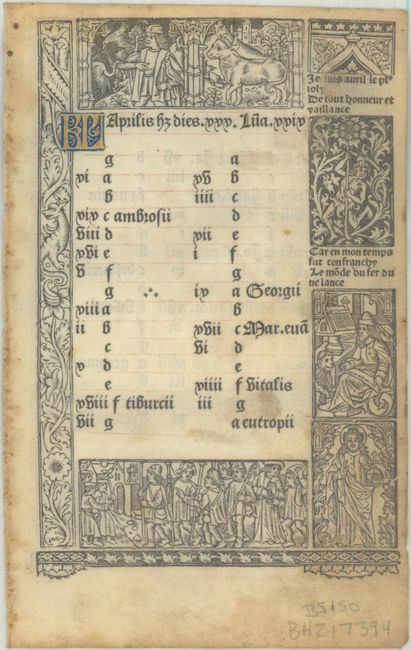 KL Aprilis hʒ dies. xxx. Lūa. xxix
g
xi a
b
xix c ambrosii
viii d
xvi e
v f
g
xiii a
ii b
c
x d
e
xviii f tiburcii
vii g
a
xv b
iiii c
d
xii e
i f
g
ix a Georgii
b
xvii c Mar. euā
vi d
e
xiiii f Vitalis
iii g
a eutropii
Je suis auril le plꝰ
ioly
De tout honneur et
vaillance
Car en mon temps
fut confranchy
Le mōde du fer du
ne lance
BS150
BHZ17394